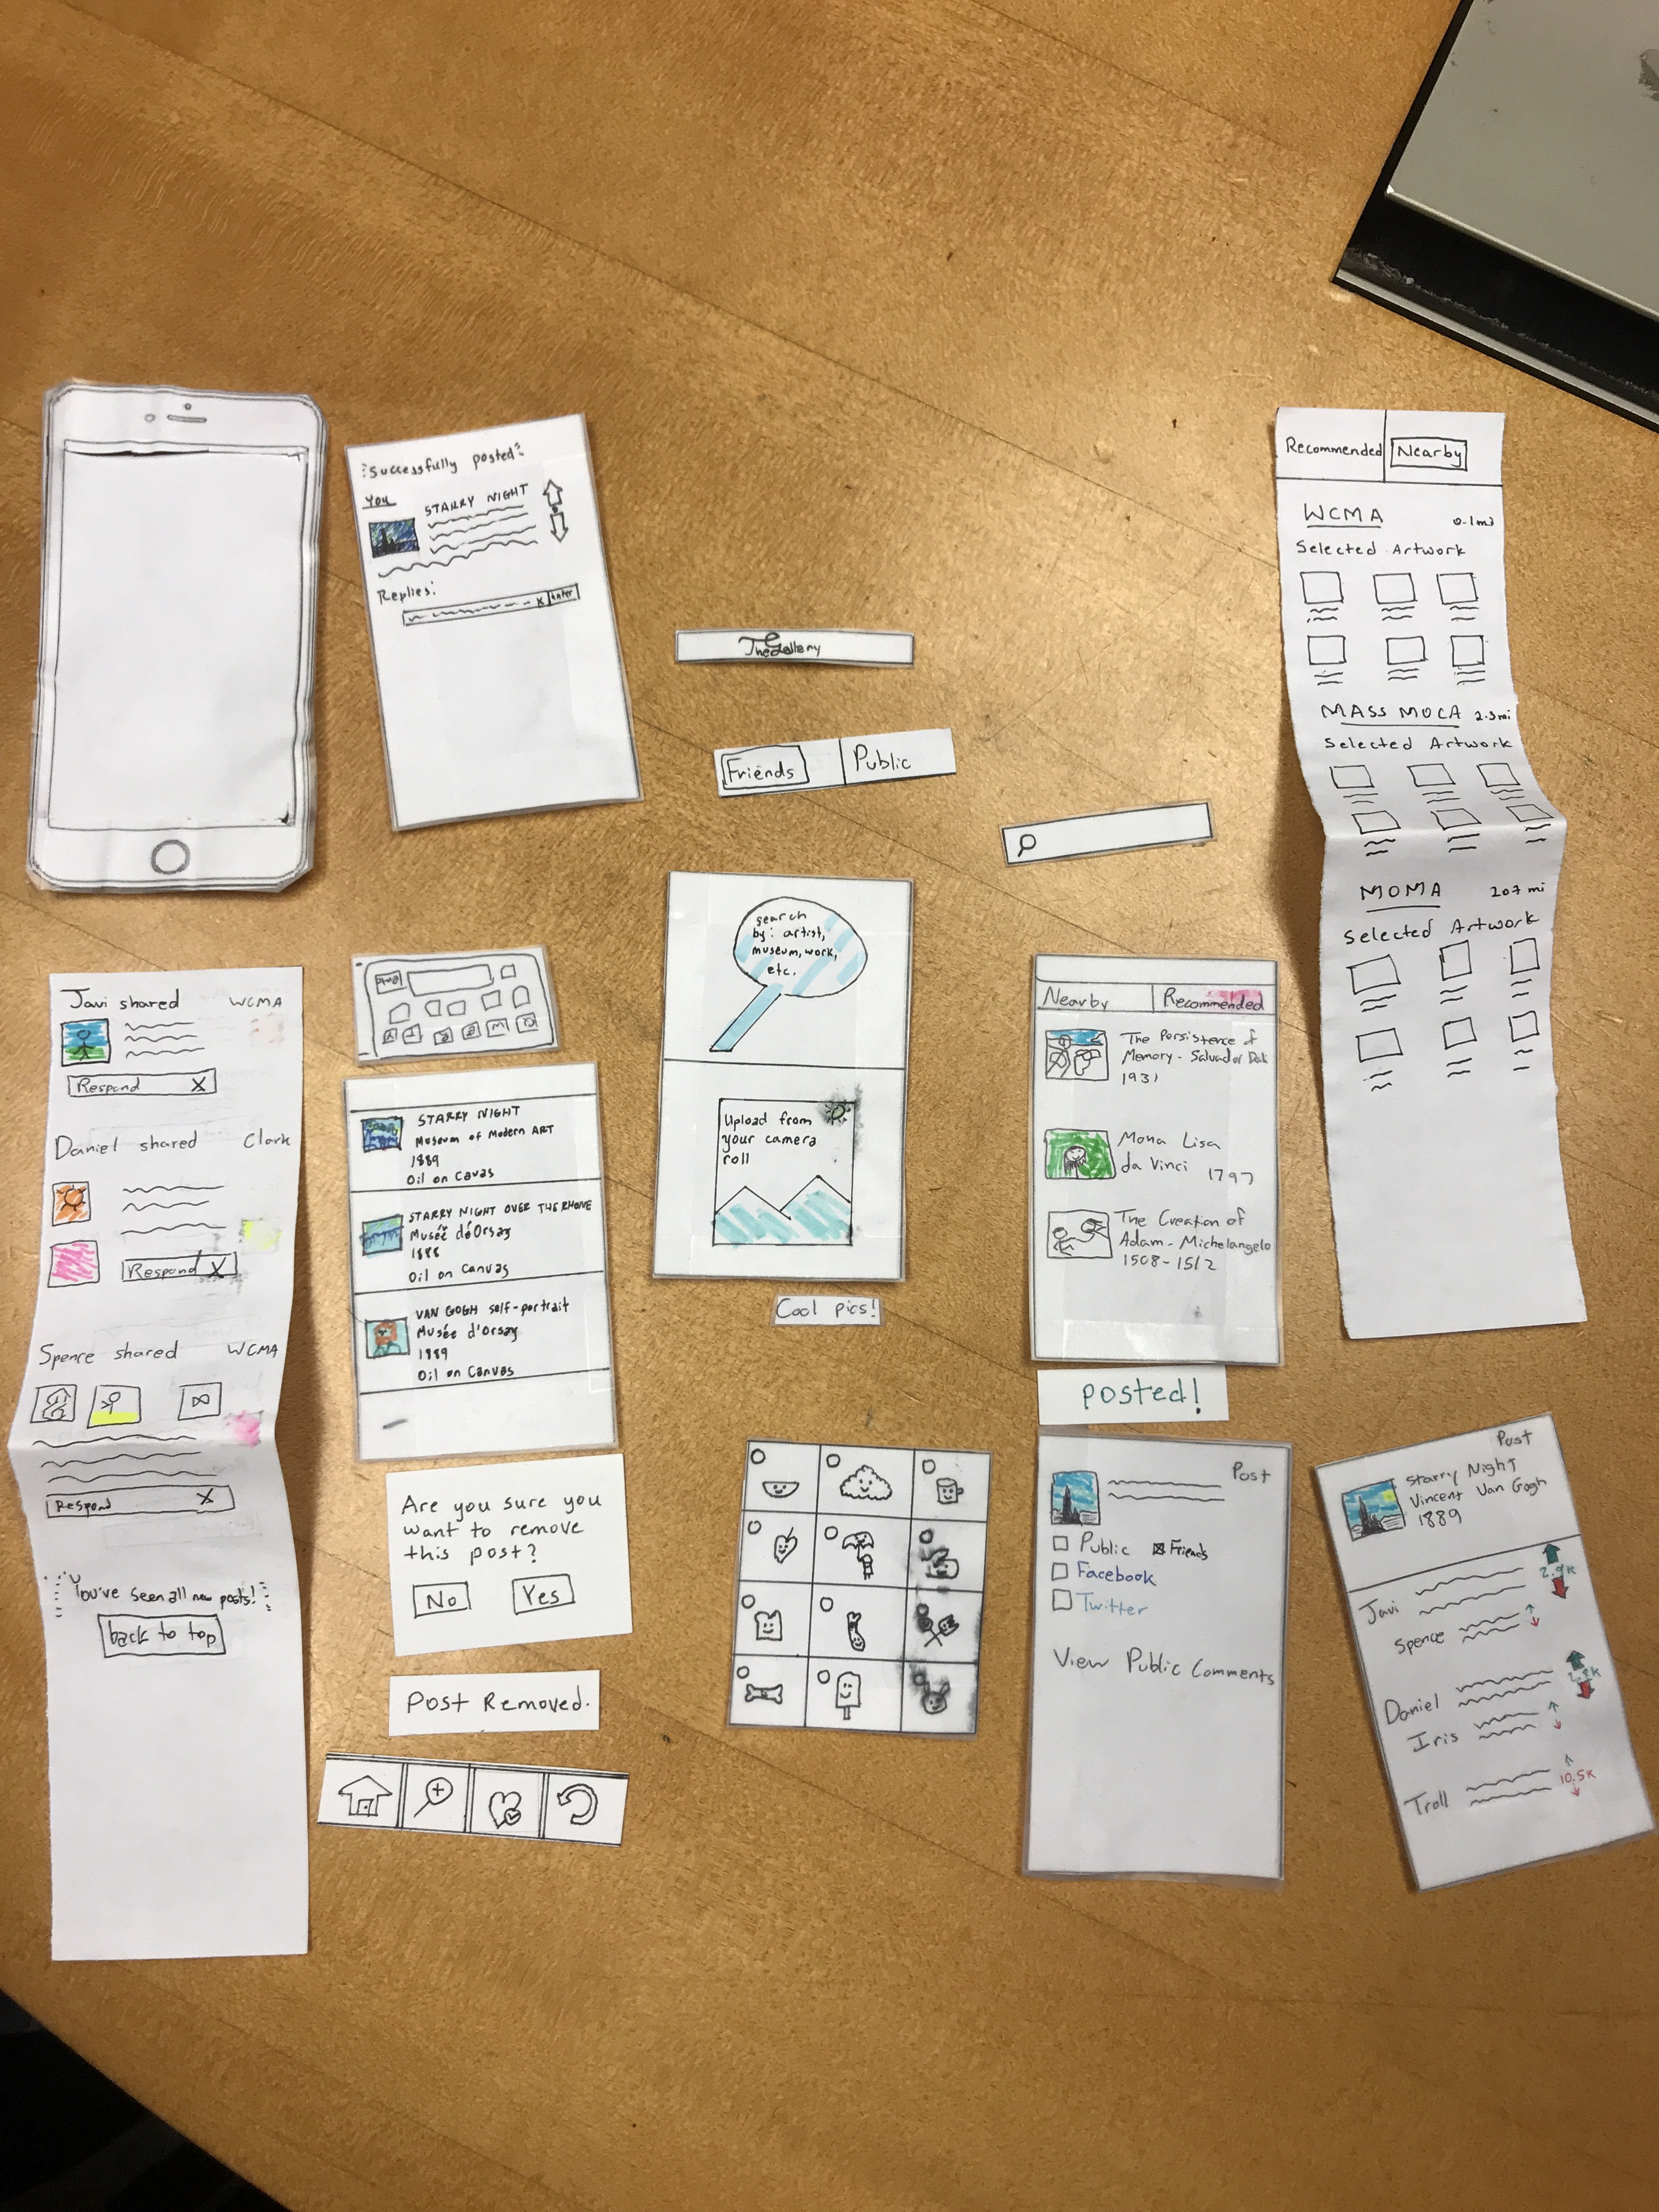 Successfully posted
You
STARRY NIGHT
Replies:
x enter
The Gallery
Friends
Public
Recommended
Nearby
WCMA 0.1 mi
Selected Artwork
MASS MOCA 2.3 mi
Selected Artwork
MOMA 207 mi
Selected Artwork
search
by: artist,
museum, work,
etc.
Upload from
your camera
roll
Cool pics!
Javi shared WCMA
Respond X
Daniel shared Clark
Respond X
Spence shared WCMA
Respond X
You've seen all new posts!
back to top
STARRY NIGHT
Museum of Modern ART
1889
Oil on Cavas
STARRY NIGHT OVER THE RHONE
Musée d'Orsay
1888
Oil on Canvas
VAN GOGH self-portrait
Musée d'Orsay
1889
Oil on Canvas
Nearby Recommended
The Persistence of
Memory - Salvador Dali
1931
Mona Lisa
da Vinci 1797
The Creation of
Adam - Michelangelo
1508-1512
Posted!
Are you sure you
want to remove
this post?
No Yes
Post Removed.
Post
Public Friends
Facebook
Twitter
View Public Comments
Post
Starry Night
Vincent Van Gogh
1889
Javi 2.9k
Spence
Daniel
Iris
Troll 10.5k